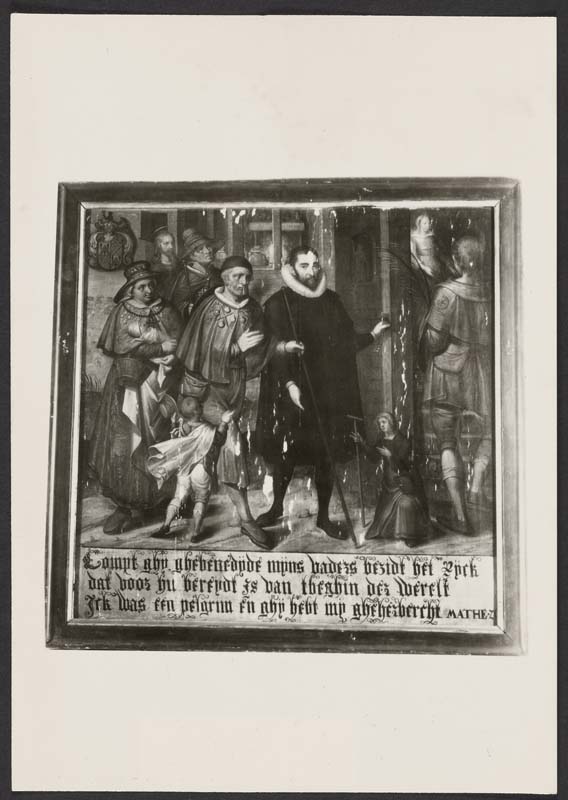 Compt ghy ghebenedyde mÿns vaders bezidt het Ryck
dat voor hu bereydt Is van tbeghin der werelt
Ick was een pelgrim en ghÿ hebt mÿ gheherbercht MATHE·Z